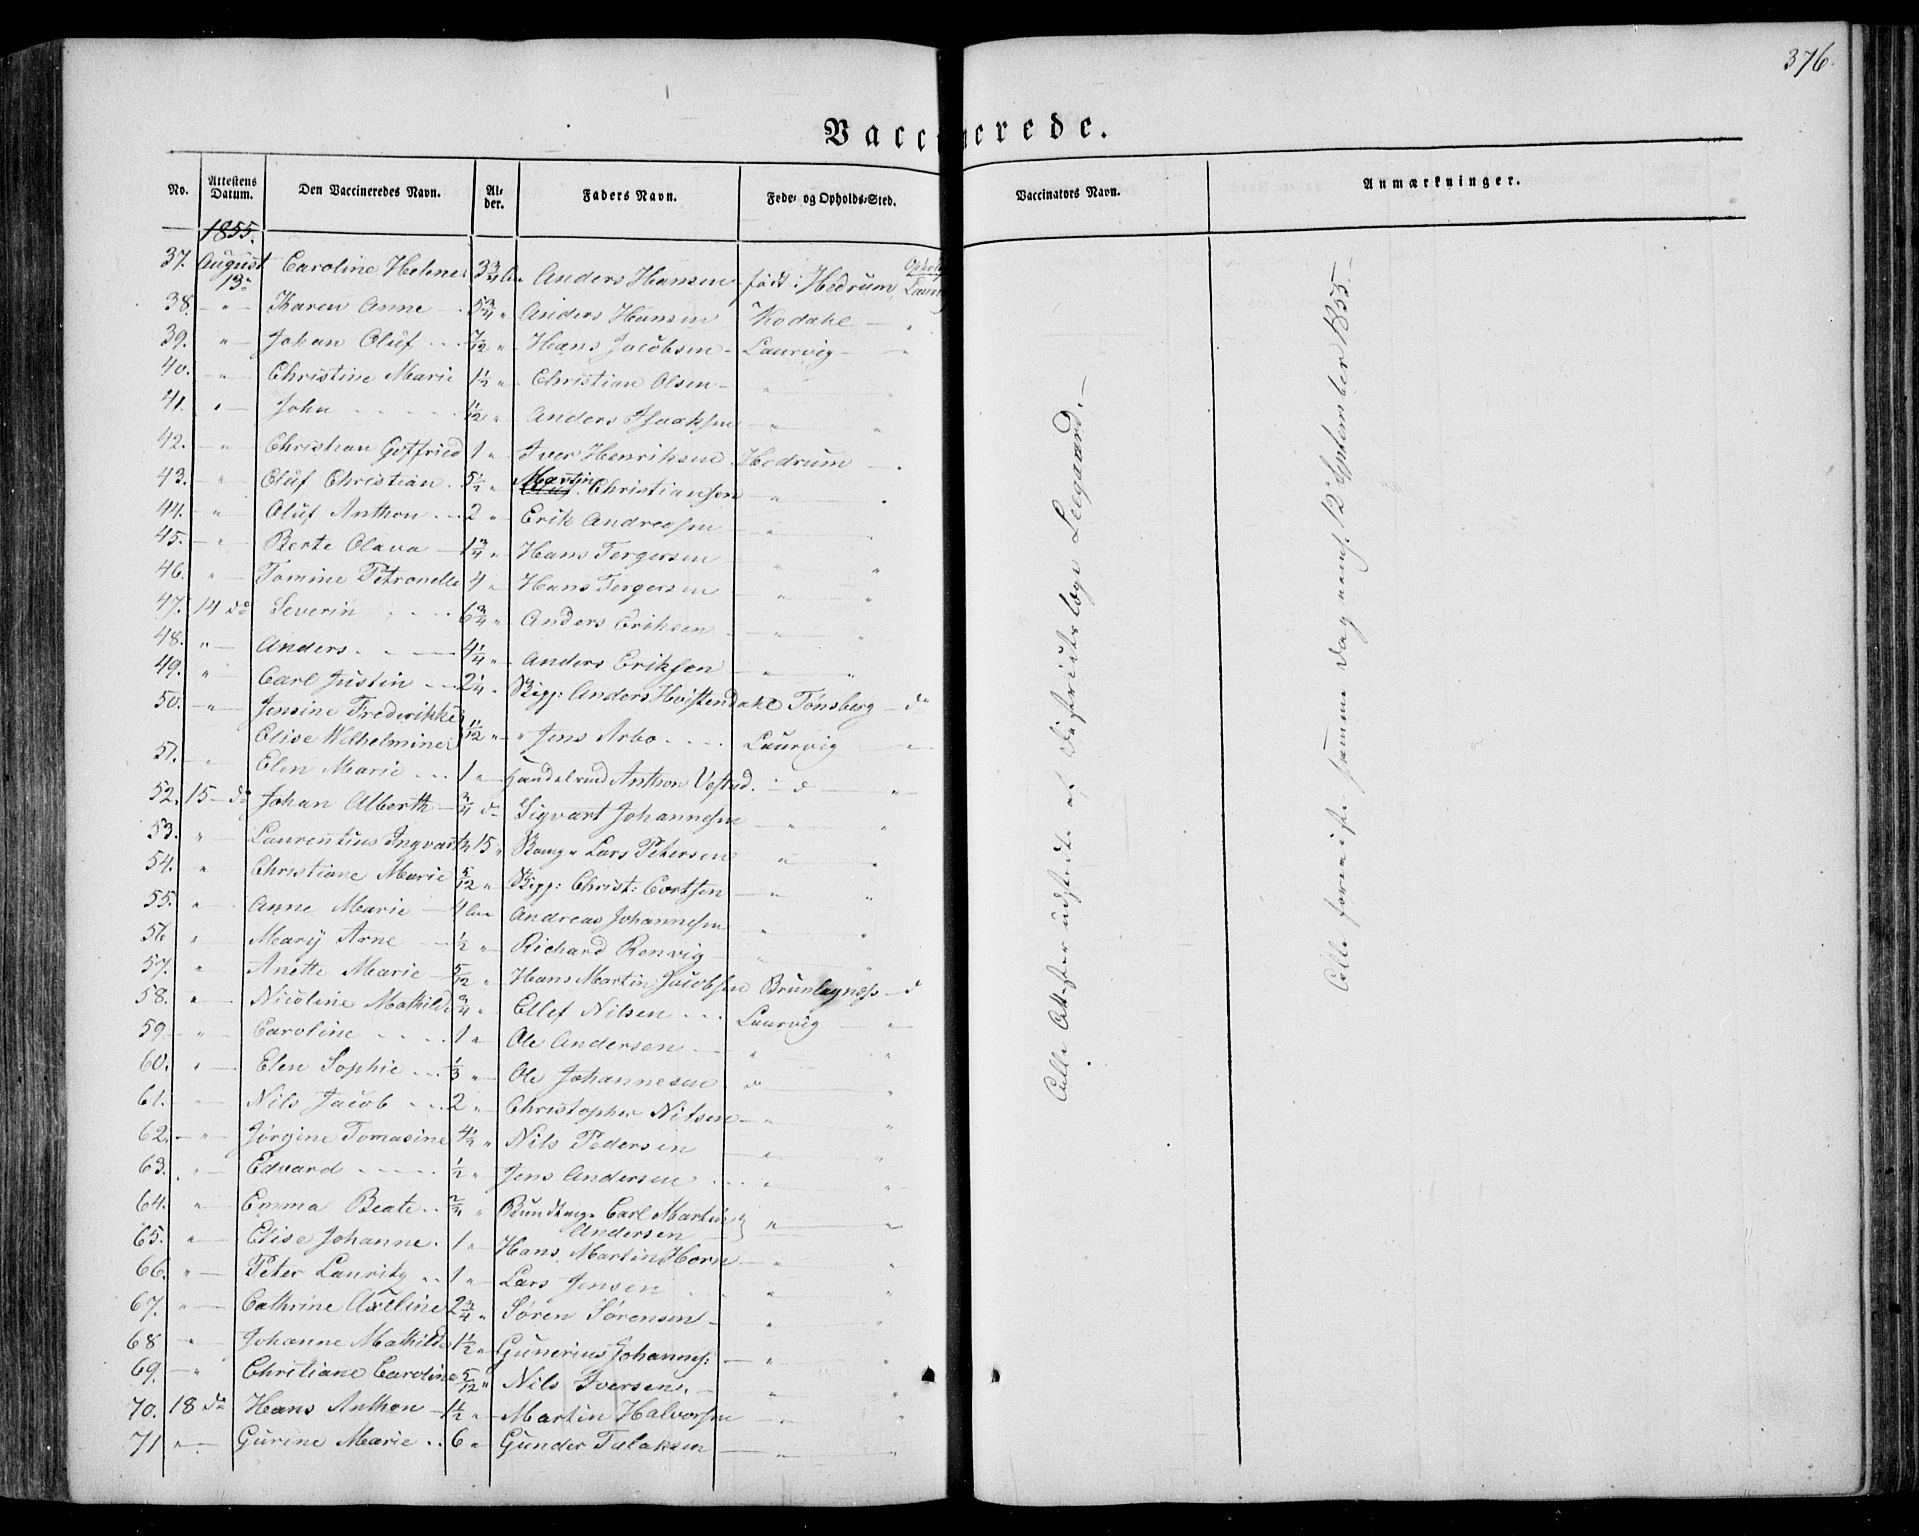 376.
Vaccinerede.
No. Attestens Datum. Den Vaccineredes Navn. Alder. Faders Navn. Føde- og Opholds-Sted. Vaccinators Navn. Anmærkninger.
1855.
37. August 13. Caroline Helene 3 3/4 Anders Hansen født i Hedrum, Laurvig
38. " Karen Anne 5 3/4 " Anders Hansen Kodahl "
39. " Johan Oluf 7/12 " Hans Jacobsen Laurvig "
40. " Christine Marie 1 1/2 " Christian Olsen " "
41. " John 11/12 " Anders Isaaksen " "
42. " Christian Gotfried 1 " Iver Henriksen Hedrum "
43. " Oluf Christian 5 1/2 " Martin Christiansen " "
44. " Oluf Anthon 2 " Erik Andreasen " "
45. " Berte Olava 1 3/4 " Hans Tergersen " "
46. " Tomine Petronelle 4 " Hans Tergersen " "
47. 14 do Severin 6 3/4 " Anders Eriksen " "
48. " Anders 4 1/4 " Anders Eriksen " "
49. " Carl Justin 2 1/4 " Skipp: Anders Hvistendahl Tønsberg do
50. " Jensine Frederikke
Elise Wilhelmine 11/12 " " Jens Arbo Laurvig "
51. " Elen Marie 1 " Handelsmd Anthon Vestad do "
52. 15 do Johan Alberth 3/4 do Sigvart Johannesen " "
53. " Laurentius Ingvarth 15 " Lars Petersen " "
54. " Christiane Marie 5/12 " Skipp: Christ: Cortsen " "
55. " Anne Marie 4 Andreas Johannesen " "
56 " Mary Arne 1/2 " Richard Renvig " "
57. " Anette Marie 5/12 " Hans Martin Jacobsen Brunlagnæss d
58. " Nicoline Mathilde 3/4 " Ellef Nilsen Laurvig "
59 " Caroline 1 " Ole Andersen " "
60. " Elen Sophie 1/3 " Ole Johannesen " "
61. " Nils Jacob 2 " Christopher Nilsen " "
62. " Jørgine Tomasine 4 1/2 " Nils Pedersen " "
63. " Edvard 1/2 " Jens Andersen " "
64. " Emma Beate 3/4 " Carl Martin
Andersen " "
65. " Elise Johanne 1 " Hans Martin Horn " "
66. " Peter Lauritz 1 " Lars Jensen " "
67. " Cathrine Axeline 2 3/4 " Søren Sørensen " "
68 " Johanne Mathilde 1 1/2 " Gunerius Johannes: " "
69. " Chritiane Caroline 5/12 " Nils Iversen " "
70. 18 do Hans Anthon 1 1/2 " Martin Halvorsen " "
71 " Gurine Marie 6 " Gunder Talaksen " "
Alle Attester udstedte af Distriktslæge Leegaard.
Alle forevist samme Dag 12 September 1855.